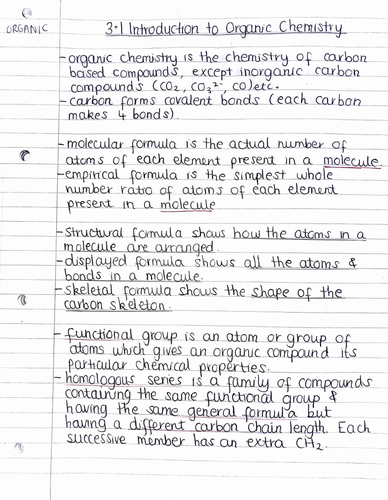 ORGANIC
3.1 Introduction to Organic Chemistry
- organic chemistry is the chemistry of carbon
based compounds, except inorganic carbon
compounds (CO₂, CO₃²⁻, CO) etc.
- carbon forms covalent bonds (each carbon
makes 4 bonds)
- molecular formula is the actual number of
atoms of each element present in a molecule.
- empirical formula is the simplest whole
number ratio of atoms of each element
present in a molecule
- Structural formula shows how the atoms in a
molecule are arranged.
- displayed formula shows all the atoms &
bonds in a molecule.
- Skeletal formula shows the shape of the
carbon skeleton.
- functional group is an atom or group of
atoms which gives an organic compound its
particular chemical properties.
- homologous series is a family of compounds
containing the same functional group &
having the same general formula but
having a different carbon chain length. Each
successive member has an extra CH₂.